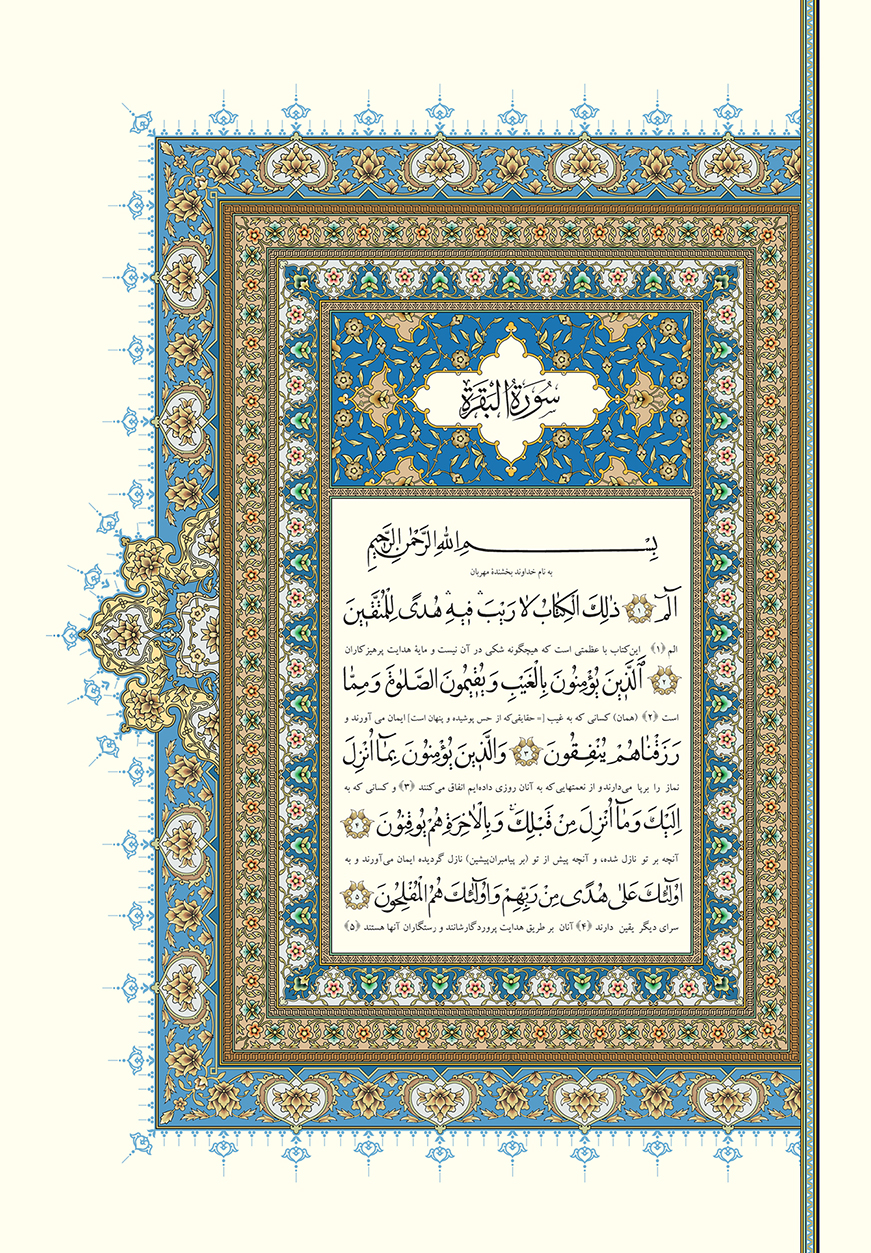 سُورَةُ الْبَقَرَةِ
بِسْمِ اللهِ الرَّحْمٰنِ الرَّحِیمِ
به نام خداوند بخشندهٔ مهربان
الٓمٓ ﴿۱﴾ ذٰلِكَ الْكِتَابُ لَا رَیْبَ ۛ فِیهِ ۛ هُدًى لِلْمُتَّقِینَ
الم ﴿۱﴾ این‌کتاب با عظمتی است که هیچگونه شکی در آن نیست و مایهٔ هدایت پرهیزکاران
﴿۲﴾ اَلَّذِینَ یُؤْمِنُونَ بِالْغَیْبِ وَیُقِیمُونَ الصَّلٰوةَ وَمِمَّا
است ﴿۲﴾ (همان) کسانی که به غیب [= حقایقی‌که از حس پوشیده و پنهان است] ایمان می آورند و
رَزَقْنَاهُمْ یُنْفِقُونَ ﴿۳﴾ وَالَّذِینَ یُؤْمِنُونَ بِمَٓا اُنْزِلَ
نماز را برپا می‌دارند و از نعمتهایی‌که به آنان روزی داده‌ایم انفاق می‌کنند ﴿۳﴾ و کسانی که به
اِلَیْكَ وَمَٓا اُنْزِلَ مِنْ قَبْلِكَ ۚ وَبِالْاٰخِرَةِ هُمْ یُوقِنُونَ ﴿۴﴾
آنچه بر تو نازل شده، و آنچه پیش از تو (بر پیامبران‌پیشین) نازل گردیده ایمان می‌آورند و به
اُولٰٓئِكَ عَلٰى هُدًى مِنْ رَبِّهِمْ وَاُولٰٓئِكَ هُمُ الْمُفْلِحُونَ ﴿۵﴾
سرای دیگر یقین دارند ﴿۴﴾ آنان بر طریق هدایت پروردگارشانند و رستگاران آنها هستند ﴿۵﴾